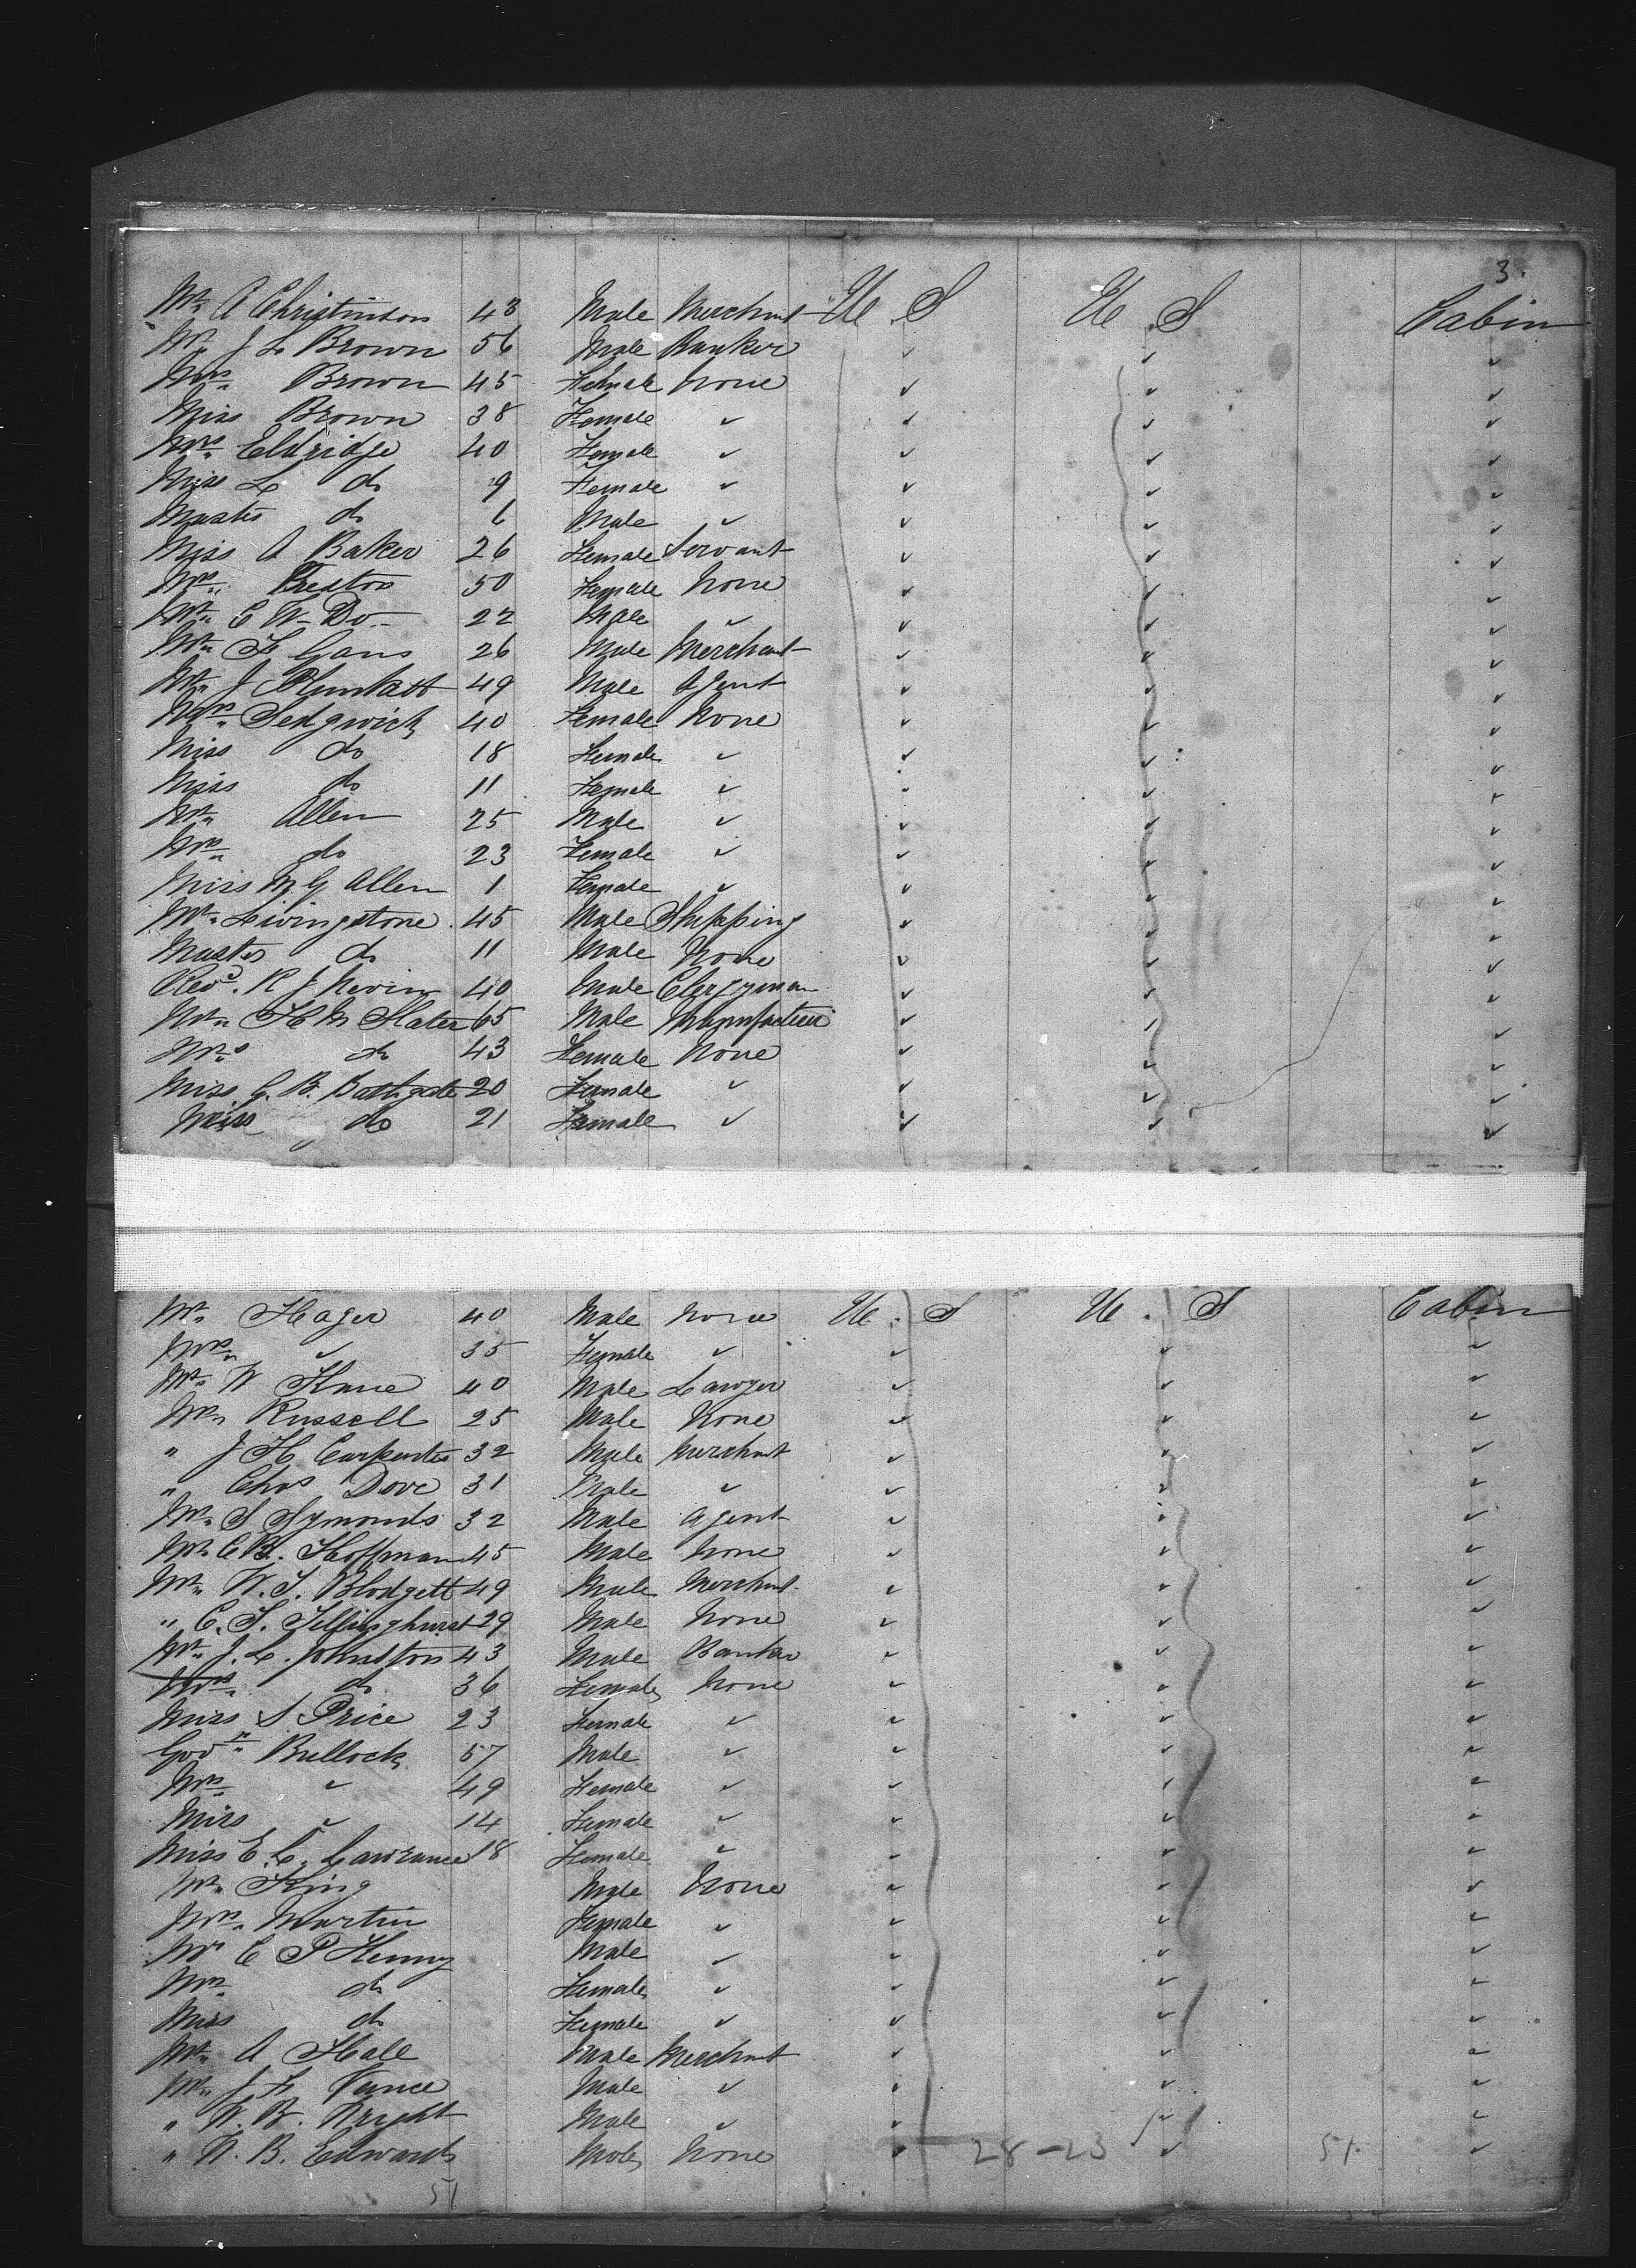 3.
Mr A Christinson 43 Male Merchant U S U S Cabin
Mr J L Brown 56 Male Banker ✓ ✓ ✓
Mrs Brown 45 Female None ✓ ✓ ✓
Miss Brown 38 Female ✓ ✓ ✓ ✓
Mrs Eldridge 40 Female ✓ ✓ ✓ ✓
Miss L do 9 Female ✓ ✓ ✓ ✓
Master do 6 Male ✓ ✓ ✓ ✓
Miss A Baker 26 Female Servant ✓ ✓ ✓
Mrs Preston 50 Female None ✓ ✓ ✓
Mr C W Do 22 Male ✓ ✓ ✓ ✓
Mr F Gans 26 Male Merchant ✓ ✓ ✓
Mr J Plunkett 49 Male Agent ✓ ✓ ✓
Mrs Sedgwick 40 Female None ✓ ✓ ✓
Miss do 18 Female ✓ ✓ ✓ ✓
Miss do 11 Female ✓ ✓ ✓ ✓
Mr Allen 25 Male ✓ ✓ ✓ ✓
Mrs do 23 Female ✓ ✓ ✓ ✓
Miss M. G Allen 1 Female ✓ ✓ ✓ ✓
Mr Livingstone 45 Male Shipping ✓ ✓ ✓
Master do 11 Male None ✓ ✓ ✓
Revd. R J Nevin 40 Male Clergyman ✓ ✓ ✓
Mr H N Slater 65 Male ✓ ✓ ✓
Mrs do 43 Female None ✓ ✓ ✓
Miss G. B. Bathgate 20 Female ✓ ✓ ✓ ✓
Miss do 21 Female ✓ ✓ ✓ ✓
Mr Hager 40 Male None U. S U. S Cabin
Mrs ✓ 35 Female ✓ ✓ ✓ ✓
Mr W Kane 40 Male Lawyer ✓ ✓ ✓
Mr Russell 25 Male None ✓ ✓ ✓
" J H Carpenter 32 Male Merchant ✓ ✓ ✓
" Chas Dove 31 Male ✓ ✓ ✓ ✓
Mr S Symonds 32 Male Agent ✓ ✓ ✓
Mr C B. Hoffman 45 Male None ✓ ✓ ✓
Mr W. T. Blodgett 49 Male Merchant ✓ ✓ ✓
" C. T. Tillinghurst 29 Male None ✓ ✓ ✓
Mr J. L. Johnston 43 Male Banker ✓ ✓ ✓
Mrs do 36 Female None ✓ ✓ ✓
Miss S Price 23 Female ✓ ✓ ✓ ✓
Govr Bullock 57 Male ✓ ✓ ✓ ✓
Mrs ✓ 49 Female ✓ ✓ ✓ ✓
Miss ✓ 14 Female ✓ ✓ ✓ ✓
Miss E. C. Lawrance 18 Female ✓ ✓ ✓ ✓
Mr King Male None ✓ ✓ ✓
Mrs Martin Female ✓ ✓ ✓ ✓
Mr C P Henny Male ✓ ✓ ✓ ✓
Mrs do Female ✓ ✓ ✓ ✓
Miss do Female ✓ ✓ ✓ ✓
Mr A Hall Male Merchant ✓ ✓ ✓
Mr J L Vance Male ✓ ✓ ✓ ✓
" W. B. Wright Male ✓ ✓ ✓ ✓
" W. B. Edwards Male None ✓ 28-23 ✓ 51 ✓
51